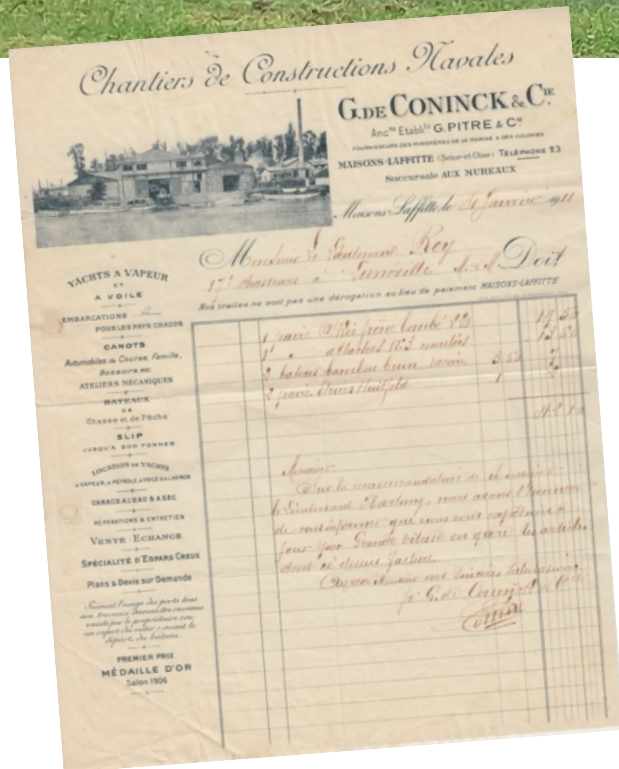 Chantiers de Constructions Navales
G. DE CONINCK & CIE.
Ancns Etablts G. PITRE & Cie
FOURNISSEURS DES MINISTÈRES DE LA MARINE & DES COLONIES
MAISONS-LAFFITTE (Seine-et-Oise) TÉLÉPHONE 23
Succursale AUX MUREAUX
Maisons-Laffitte, le 21 Janvier 1911
Monsieur le Lieutenant Rey
17e Chasseurs à Lunéville M. & M. Doit
Nos traites ne sont pas une dérogation au lieu de paiement MAISONS-LAFFITTE
YACHTS A VAPEUR
ET
A VOILE
EMBARCATIONS
POUR LES PAYS CHAUDS
CANOTS
Automobiles de Course, Famille,
ATELIERS MÉCANIQUES
BATEAUX
DE
Chasse et de Pêche
SLIP
JUSQU'A 200 TONNES
LOCATION DE YACHTS
A VAPEUR, A PÉTROLE, A VOILE & A L'AVIRON
GARAGE A L'EAU & A SEC
RÉPARATIONS & ENTRETIEN
VENTE - ECHANGE
SPÉCIALITÉ D'ESPARS CREUX
Plans & Devis sur Demande
Suivant l'usage des ports tous
départ du bateau.
PREMIER PRIX
MÉDAILLE D'OR
Salon 1906
1 paire
1 " attaches
2 batons bambou 3.50
2 paire 1
Monsieur
Sur la recommandation de
le Lieutenant Hartung, nous avons l'honneur
de vous informer que nous vous expédions
jour Grande vitesse en gare les articles
dont ci dessus facture
Agréez Monsieur nos Sincères Salutations
G. de Coninck & Cie